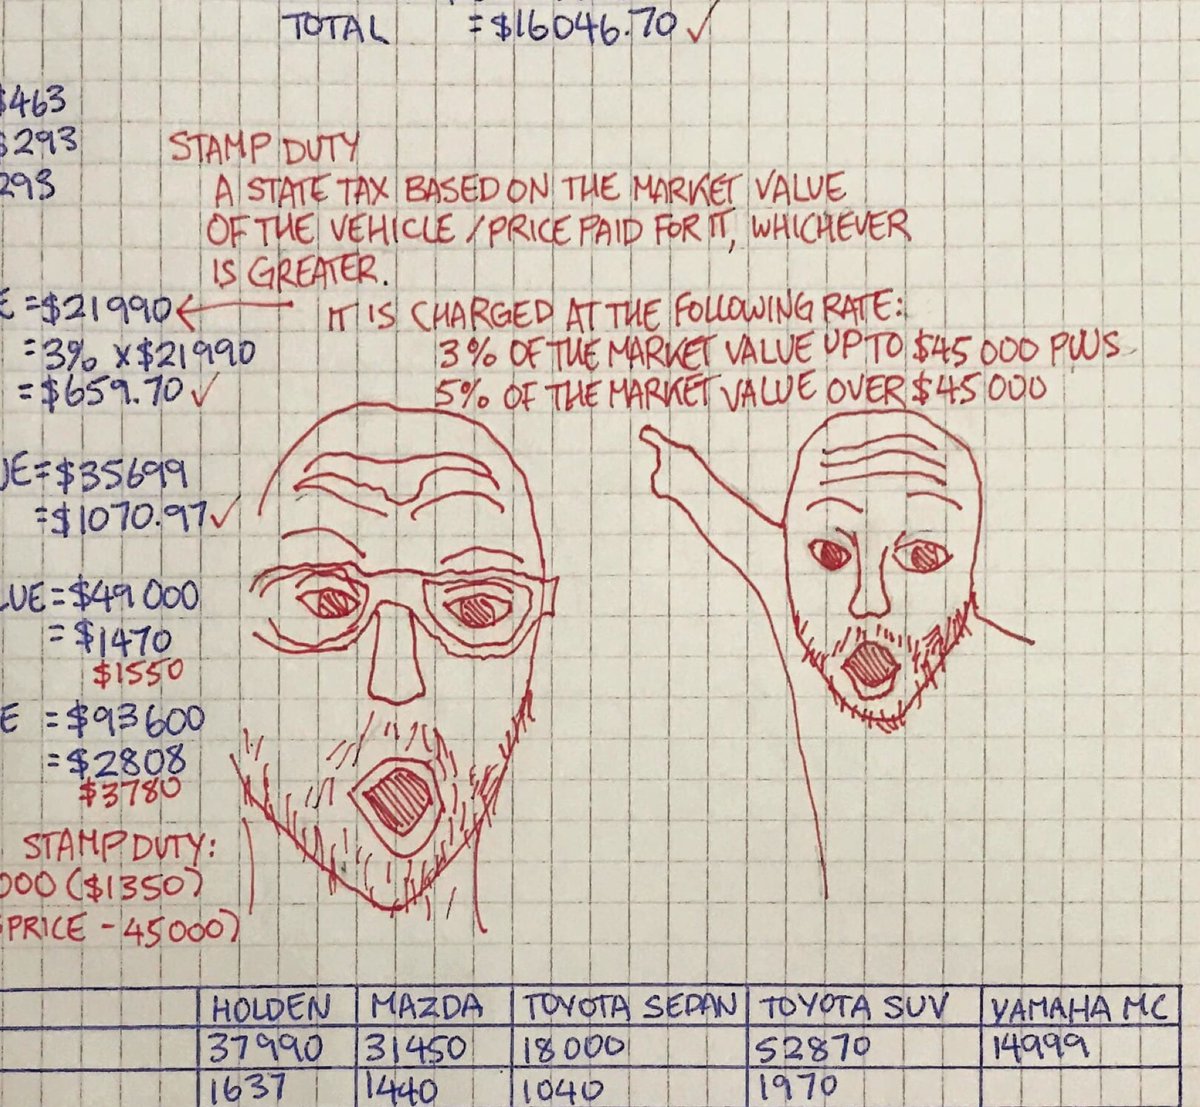 TOTAL = $16046.70 ✓
$463
$293
293
STAMP DUTY
A STATE TAX BASED ON THE MARKET VALUE
OF THE VEHICLE / PRICE PAID FOR IT, WHICHEVER
IS GREATER.
IT IS CHARGED AT THE FOLLOWING RATE:
3% OF THE MARKET VALUE UP TO $45 000 PLUS
5% OF THE MARKET VALUE OVER $45 000
E = $21990
= 3% × $21990
= $659.70 ✓
UE = $35699
= $1070.97 ✓
LUE = $49 000
= $1470
$1550
E = $93600
= $2808
$3780
STAMP DUTY:
000 ($1350)
PRICE - 45000)
HOLDEN MAZDA TOYOTA SEDAN TOYOTA SUV YAMAHA MC
37990 31450 18000 52870 14999
1637 1440 1040 1970